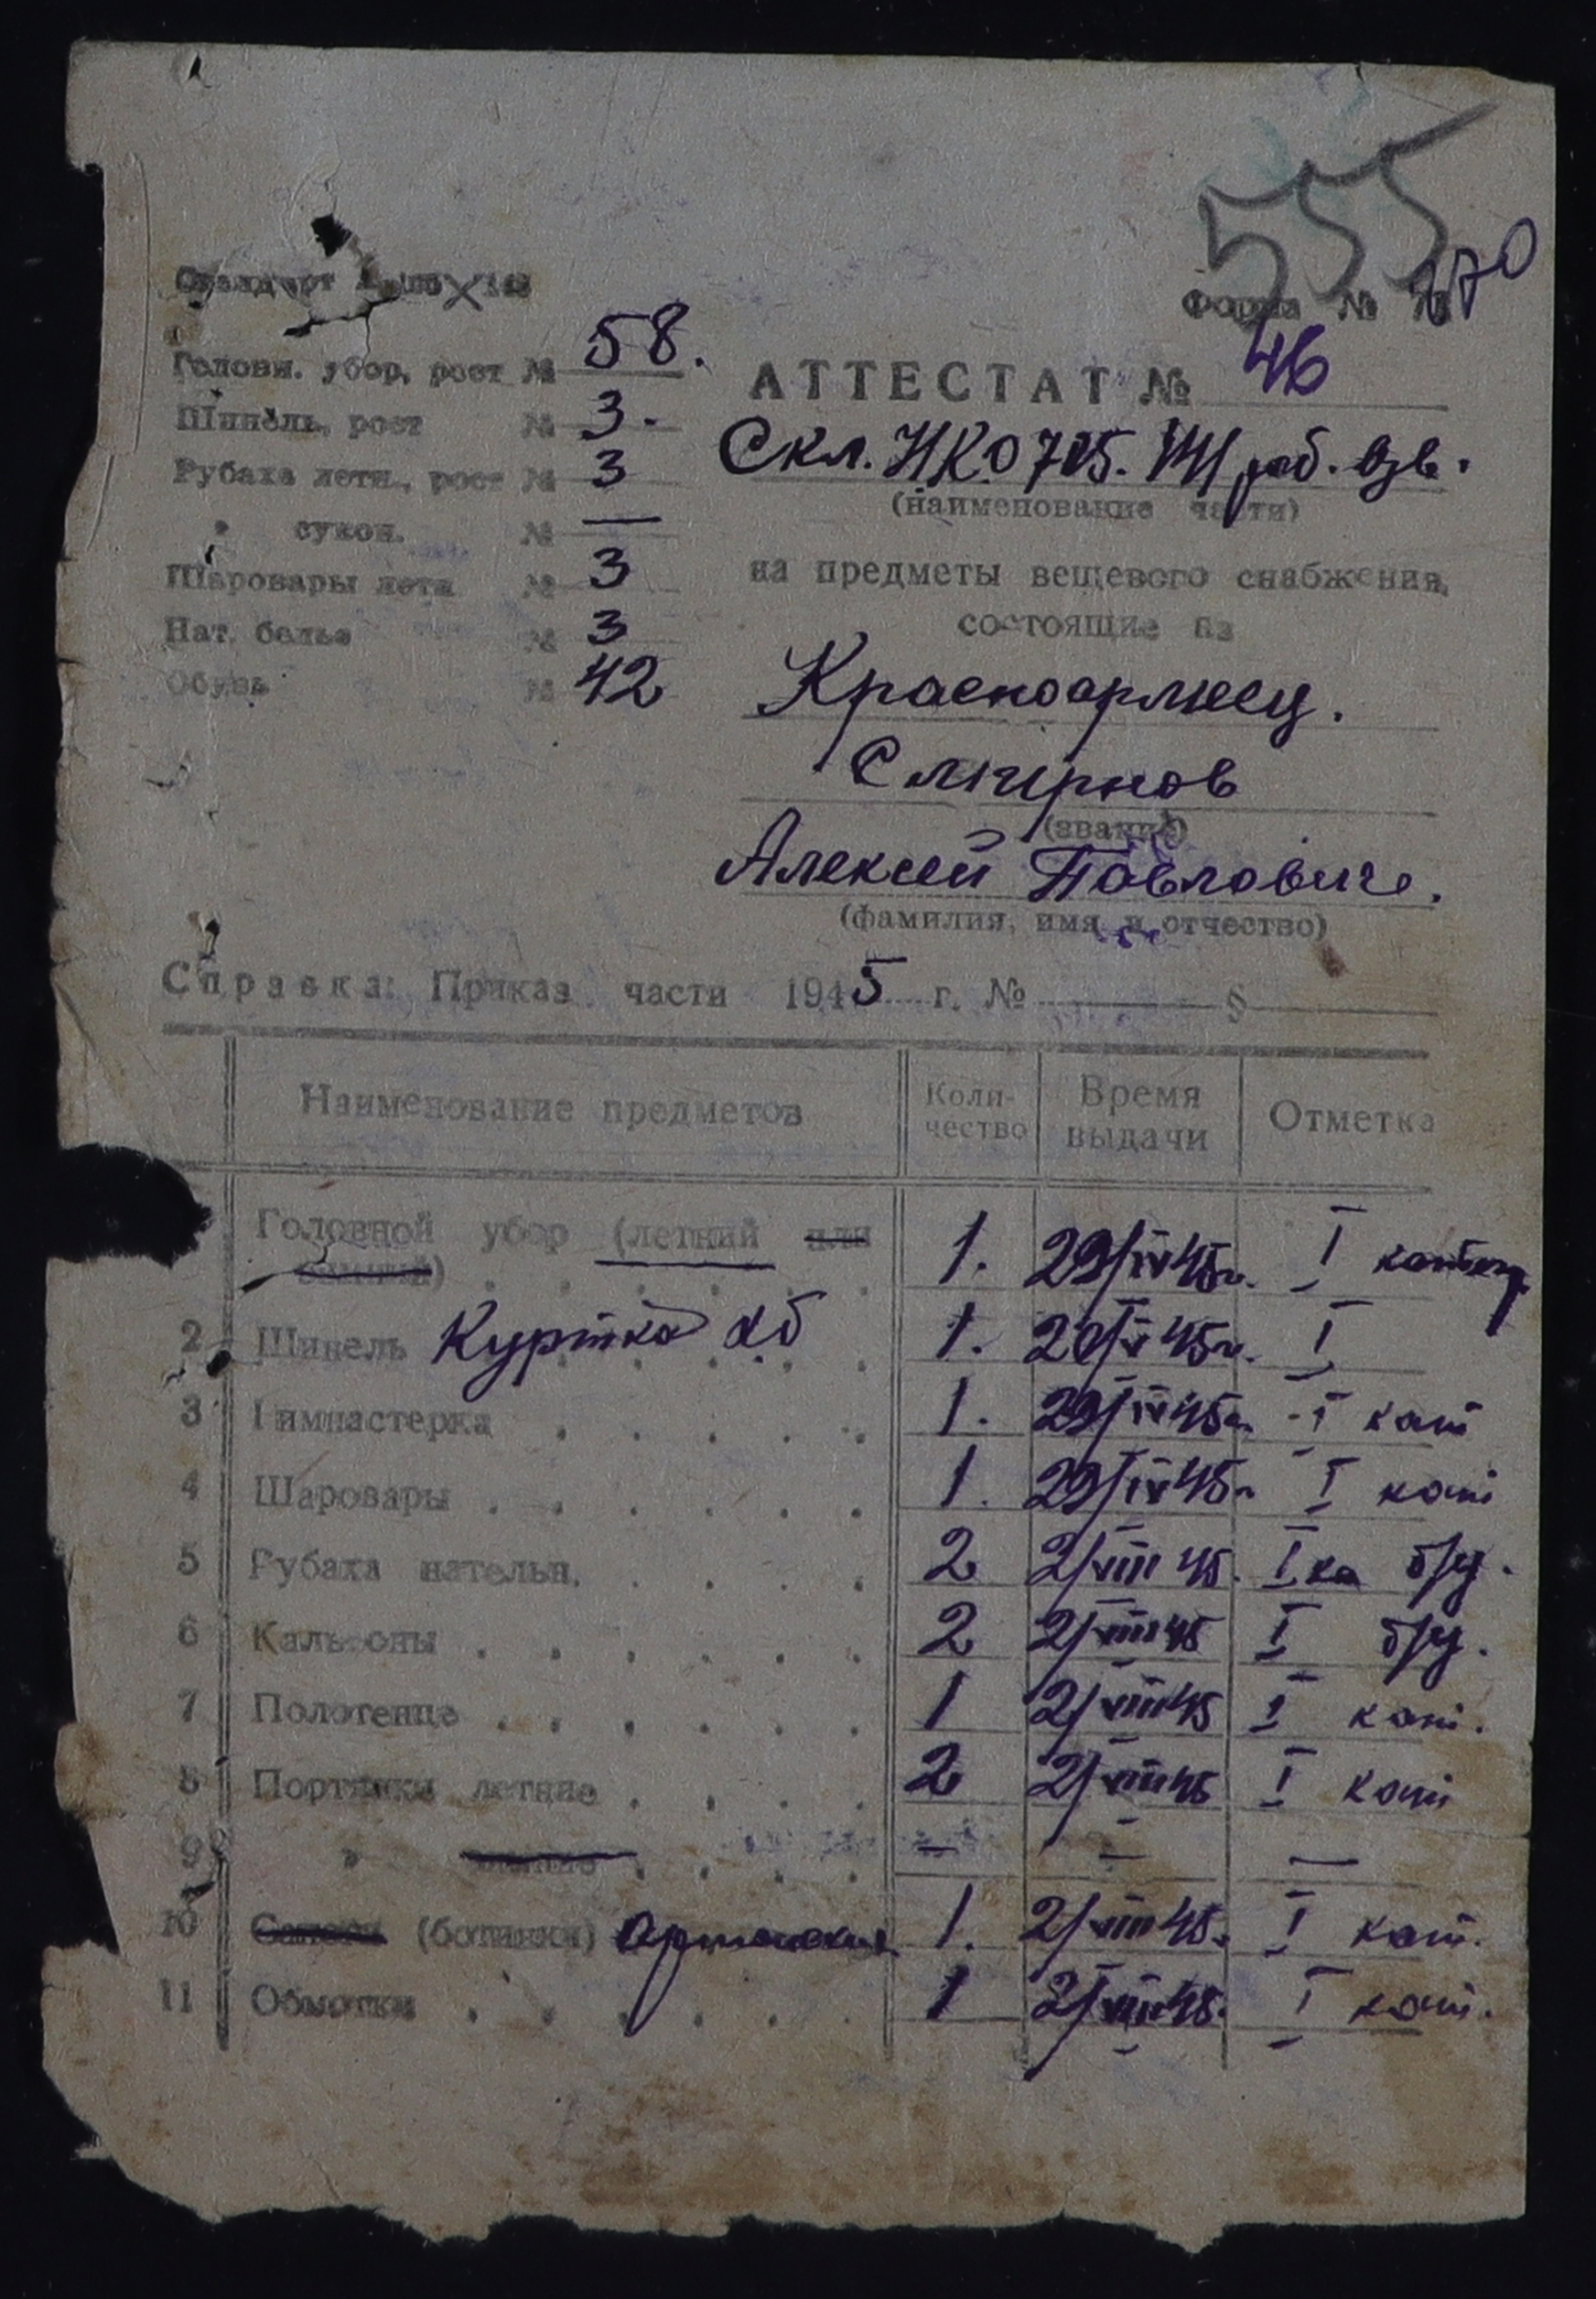 555
270
Форма №
Головн. убор, рост № 58.
АТТЕСТАТ № 46
Шинель, рост № 3.
Скл. НКО 715.
Рубаха летн., рост № 3
(наименование части)
" сукон. № —
Шаровары летн № 3
на предметы вещевого снабжения,
Нат. белье № 3
состоящие из
Обувь № 42
Красноармеец.
Смирнов
(звание)
Алексей Павлович.
(фамилия, имя и отчество)
Справка: Приказ части 1945 г. № §
Наименование предметов Коли- Время Отметка
чество выдачи
Головной убор (летний или 1. 29/IV 45г. I
зимний)
2 Шинель Куртка хб 1. 45г. I
3 Гимнастерка 1. 29/IV 45г. I кат
4 Шаровары 1. 29/IV 45г. I кат
5 Рубаха нательн. 2 2/VIII 45. I ка б/у.
6 Кальсоны 2 2/VIII 45 I б/у.
7 Полотенце 1 2/VIII 45 I кат.
8 Портянки летние 2 2/VIII 45 I кат
9 " зимние — — —
10 Сапоги (ботинки) 1. 2/VIII 45. I кат.
11 Обмотки 1 2/VIII 45. I кат.